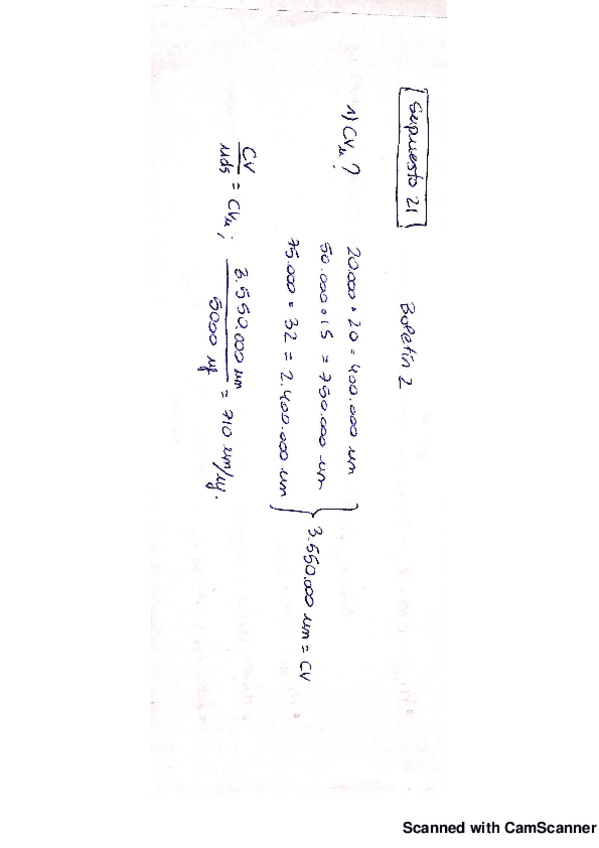 Supuesto 21
Boletín 2
1) CVu?
20.000 * 20 = 400.000 um
50.000 * 15 = 750.000 um
75.000 * 32 = 2.400.000 um
3.550.000 um = CV
CV / uds = CVu; 3.550.000 um / 5000 uf = 710 um/uf.
Scanned with CamScanner